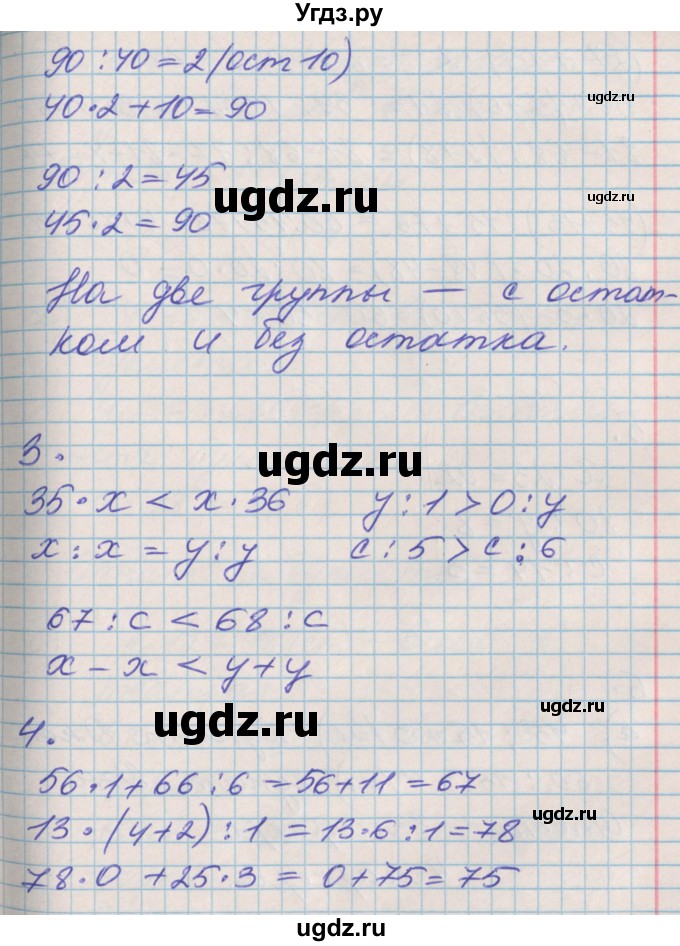 Угдз.ру
90 : 40 = 2 (ост 10)
40 · 2 + 10 = 90
ugdz.ru
90 : 2 = 45
ugdz.ru
45 · 2 = 90
ugdz.ru
На две группы — с остат-
ком и без остатка.
ugdz.ru
3.
ugdz.ru
35 · х < х · 36 у : 1 > 0 : у
х : х = у : у с : 5 > с : 6
ugdz.ru
67 : с < 68 : с
х - х < у + у
ugdz.ru
ugdz.ru
4.
56 · 1 + 66 : 6 = 56 + 11 = 67
ugdz.ru
13 · (4 + 2) : 1 = 13 · 6 : 1 = 78
78 · 0 + 25 · 3 = 0 + 75 = 75
ugdz.ru
ugdz.ru